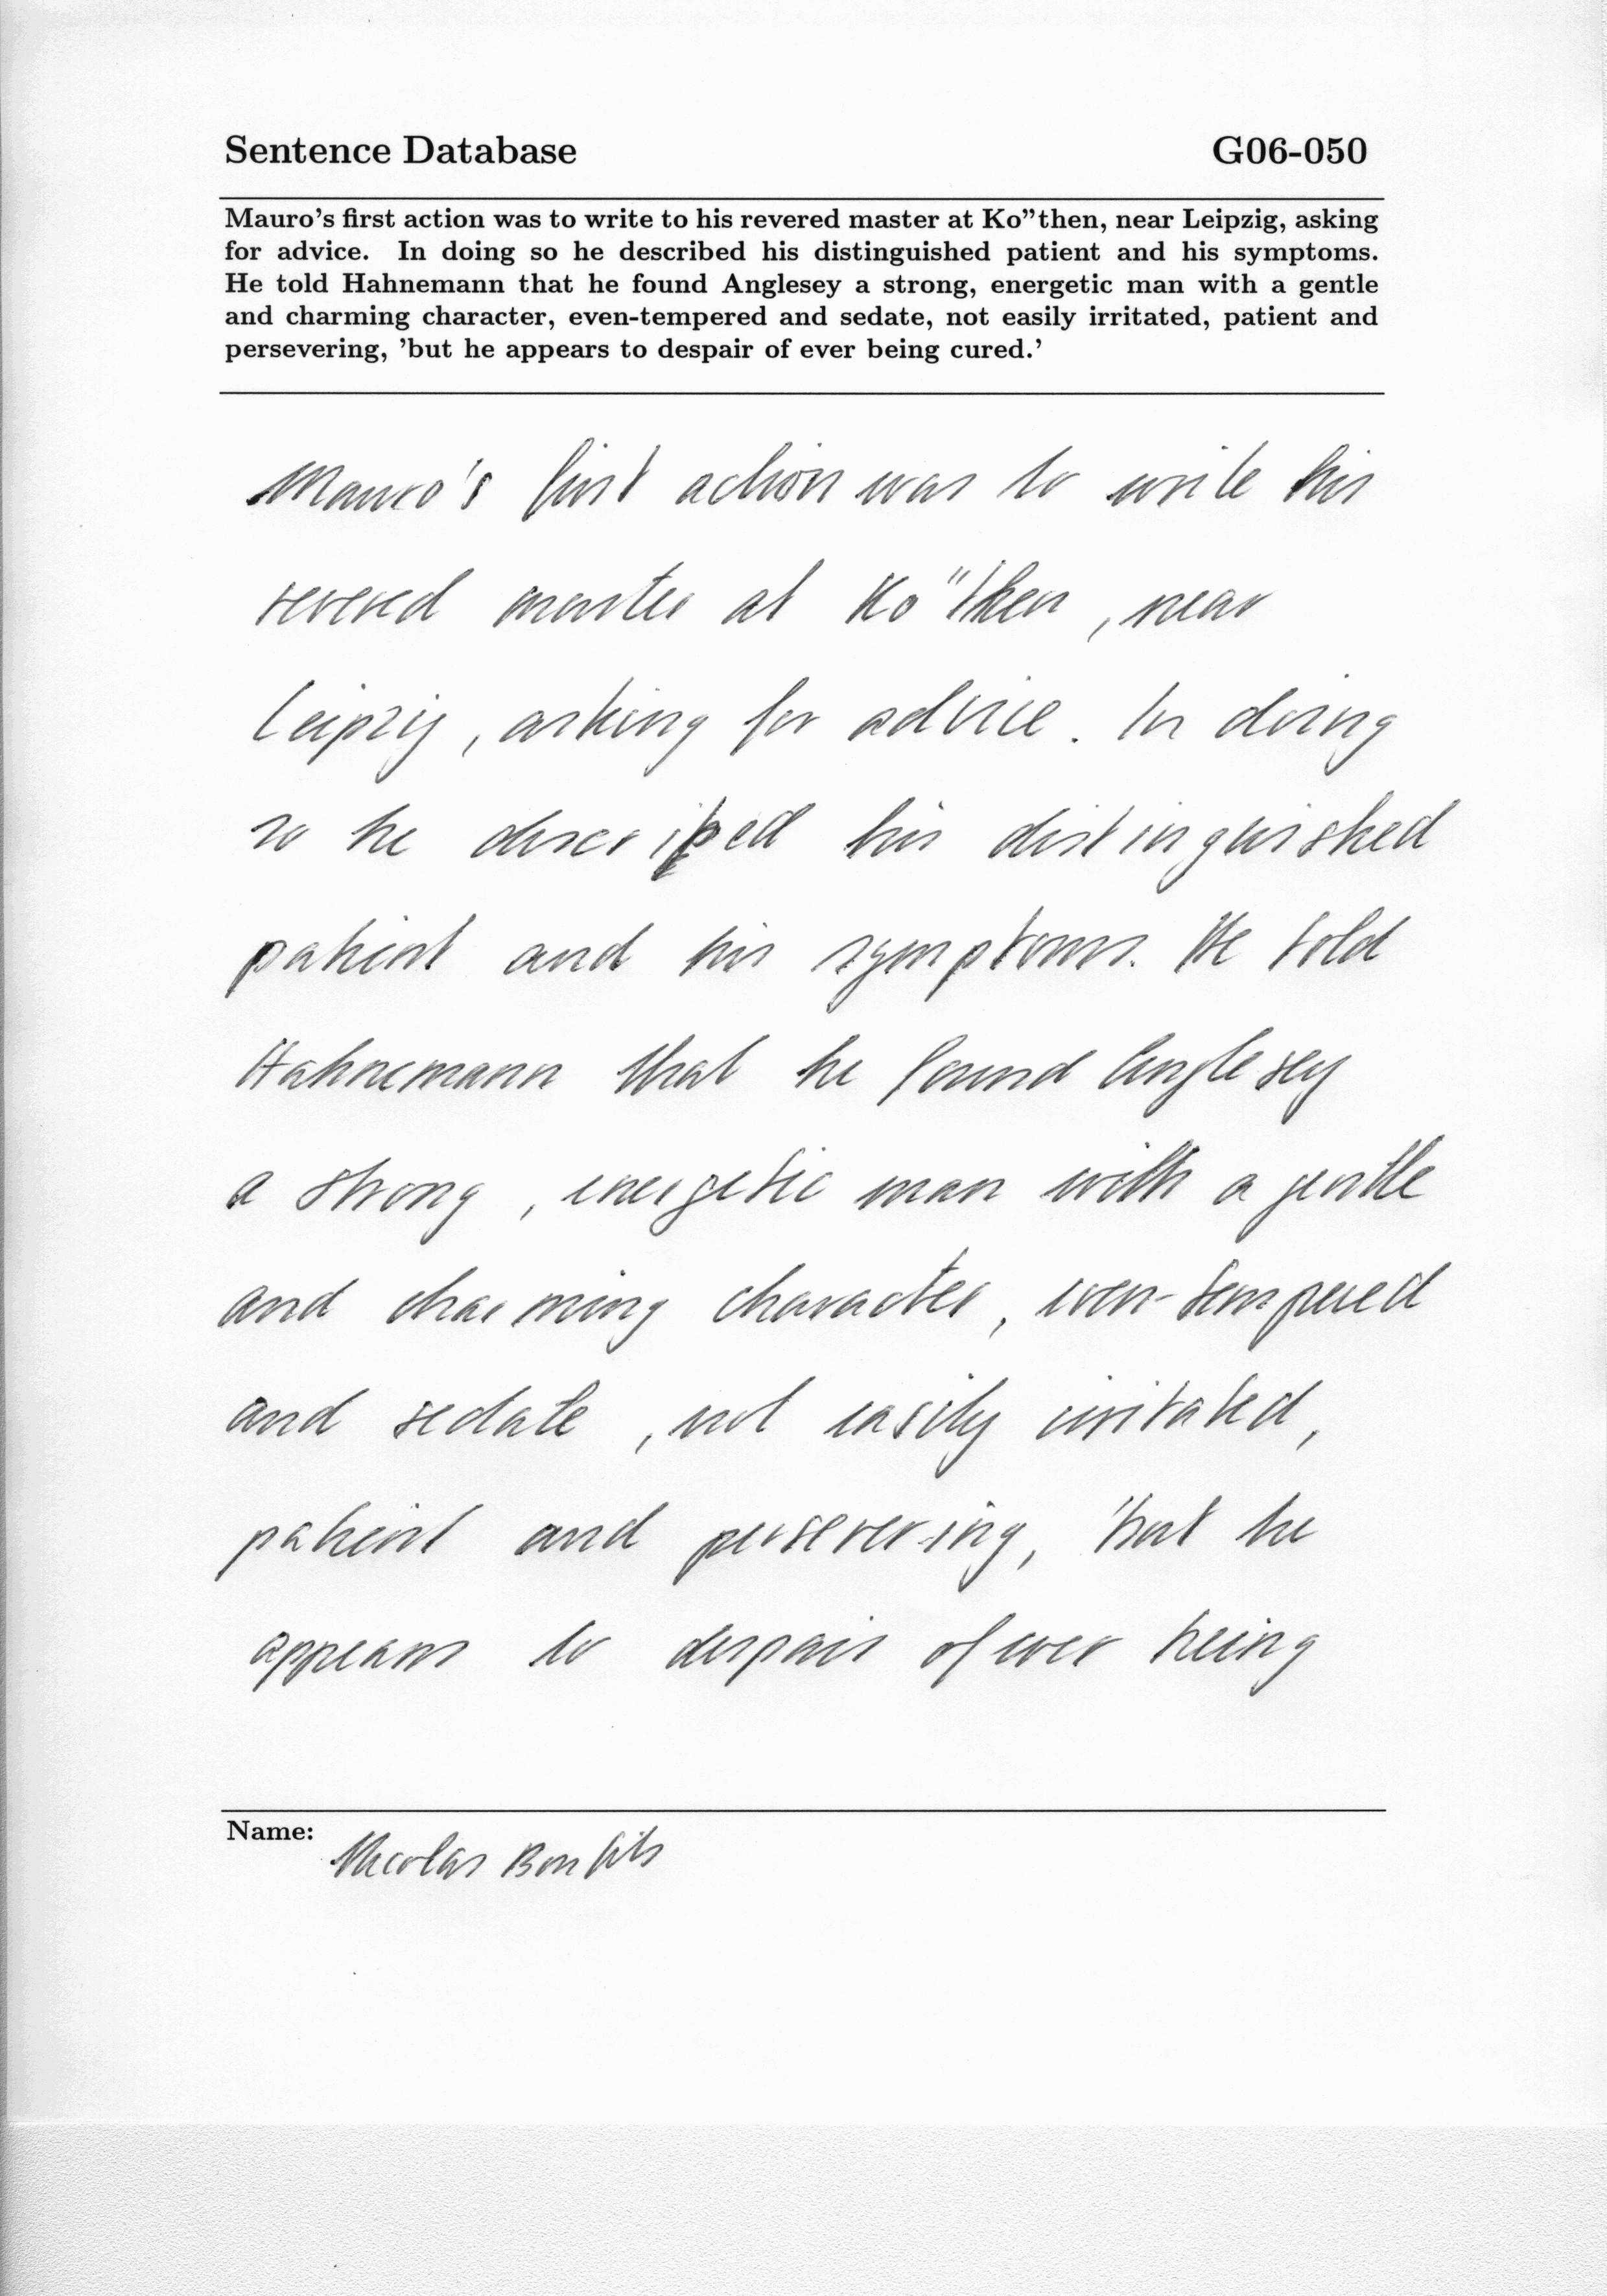 Sentence Database G06-050
Mauro's first action was to write to his revered master at Ko"then, near Leipzig, asking
for advice. In doing so he described his distinguished patient and his symptoms.
He told Hahnemann that he found Anglesey a strong, energetic man with a gentle
and charming character, even-tempered and sedate, not easily irritated, patient and
persevering, 'but he appears to despair of ever being cured.'
Mauro's first action was to write his
revered master at Ko"then, near
Leipzig, asking for advice. In doing
so he described his distinguished
patient and his symptoms. He told
Hahnemann that he found Anglesey
a strong, energetic man with a gentle
and charming character, even-tempered
and sedate, not easily irritated,
patient and persevering, 'but he
appears to despair of ever being
Name: Nicolas Bonfils